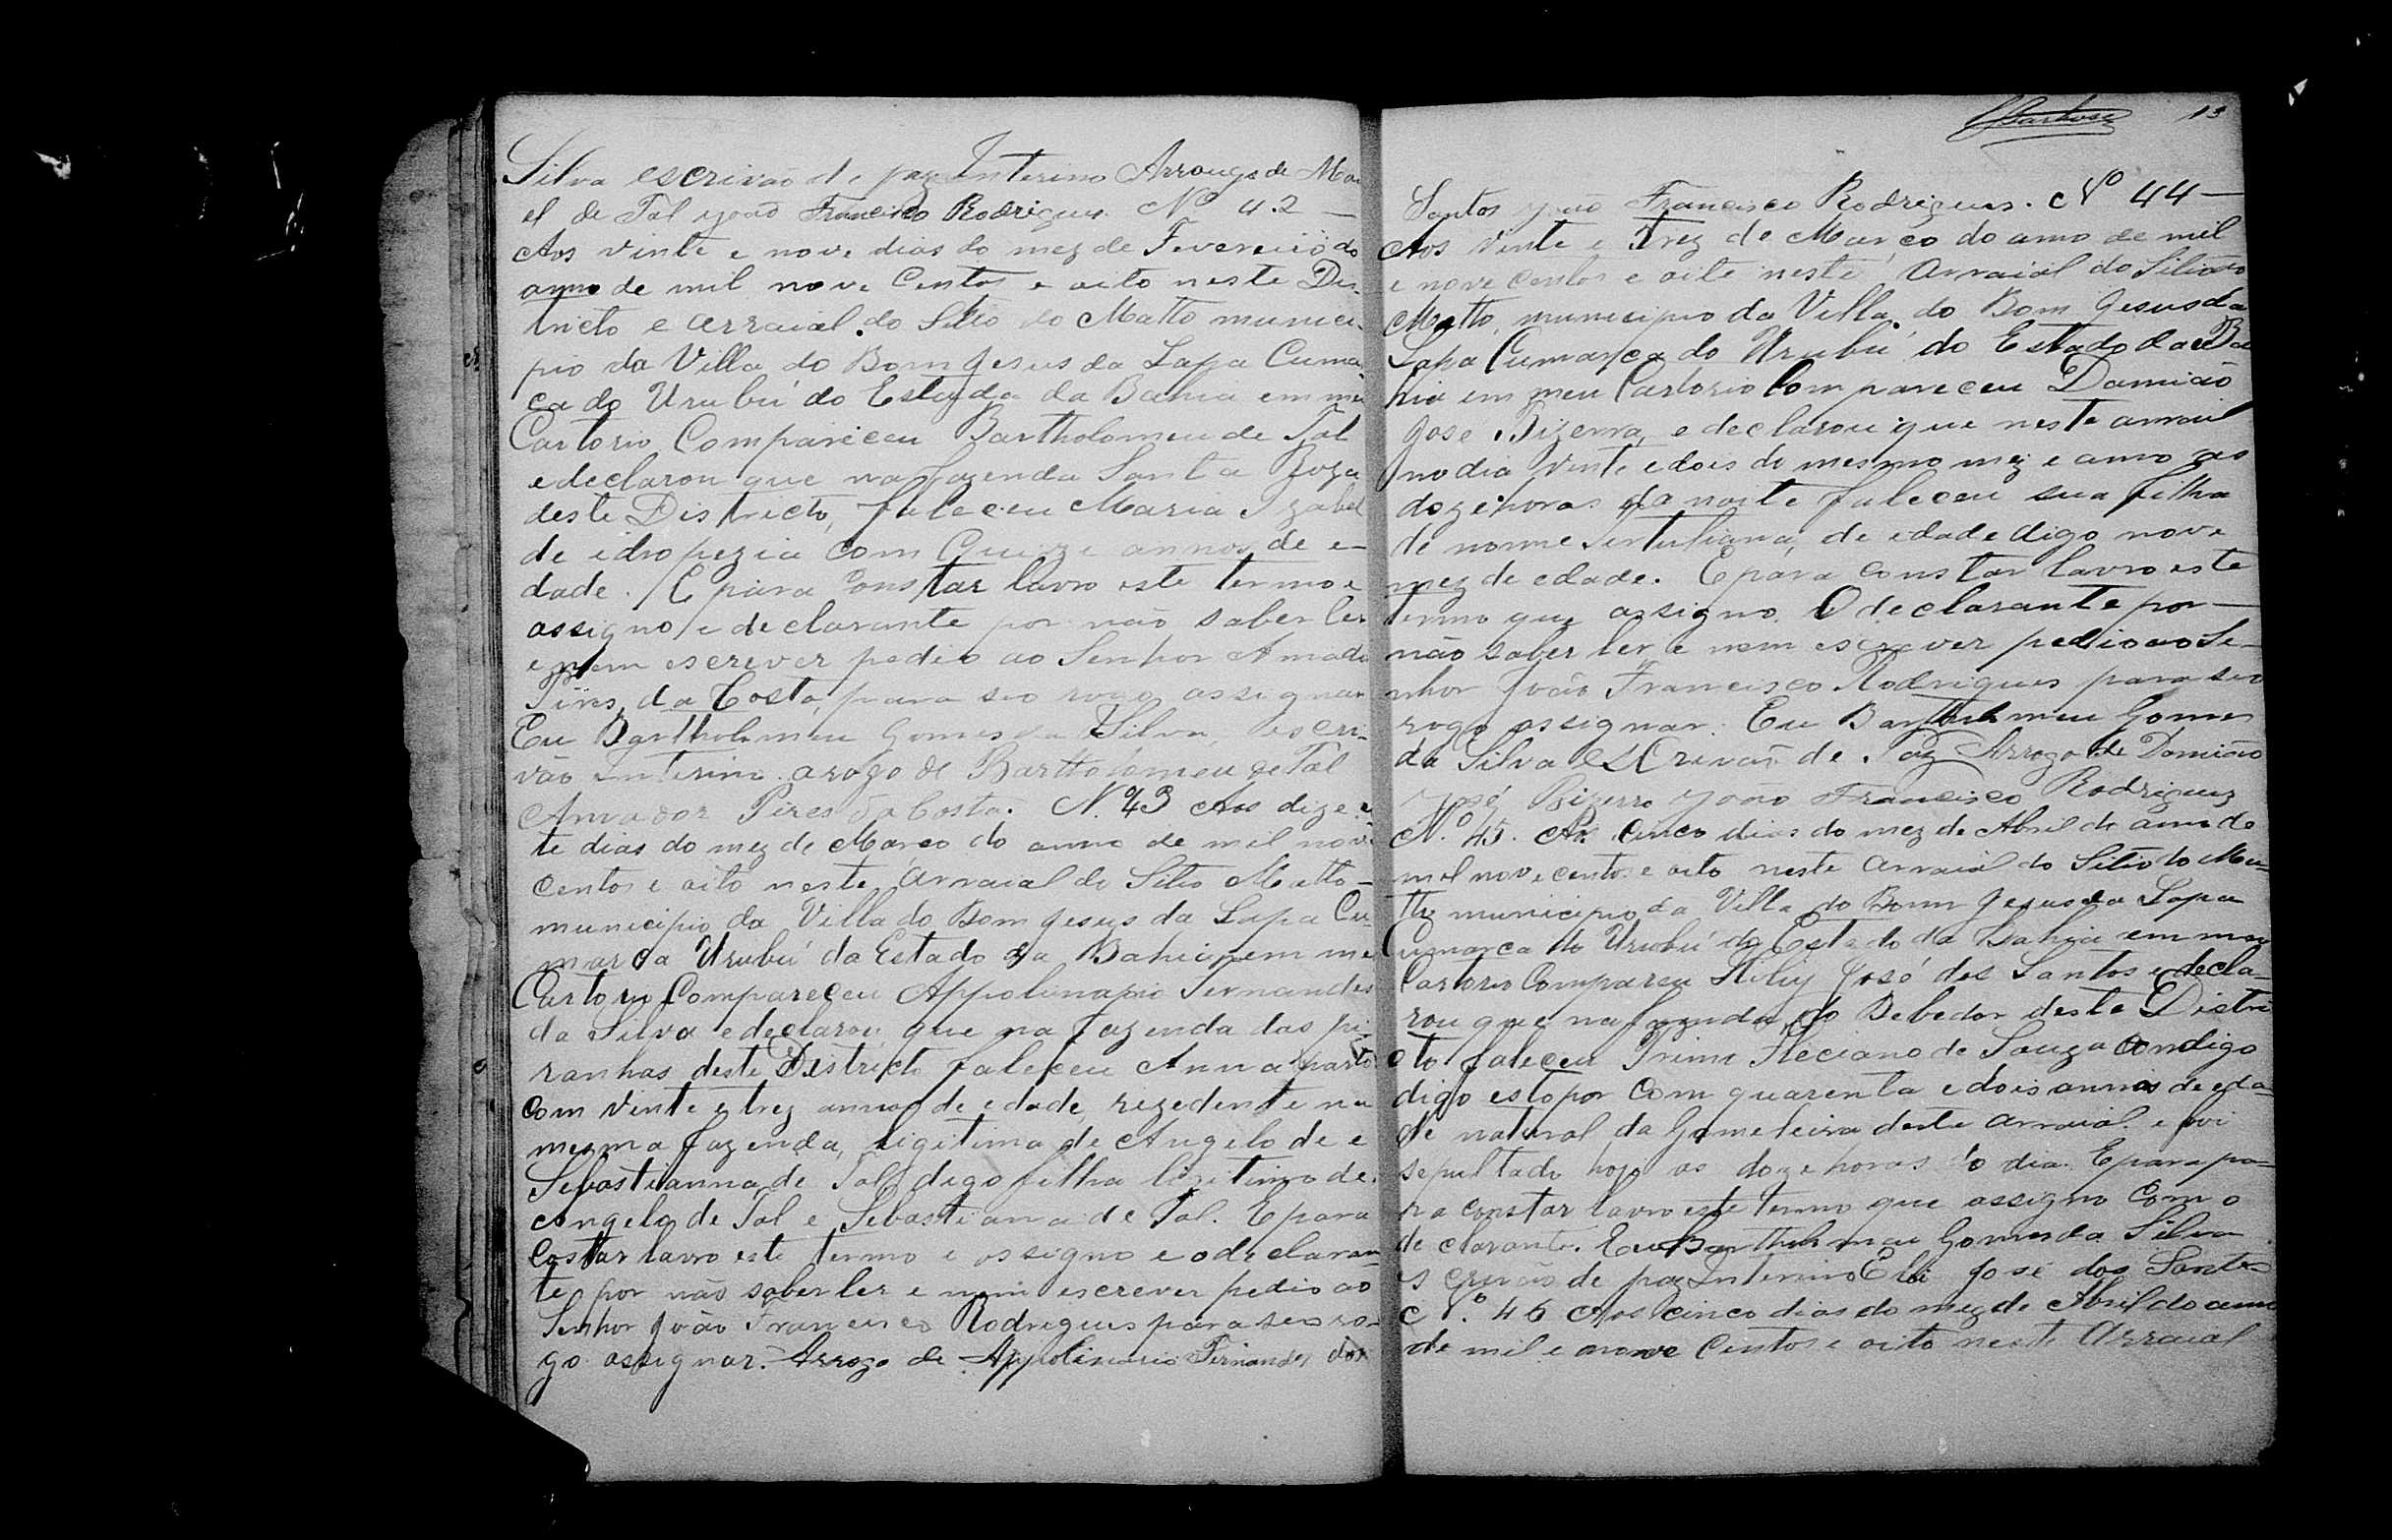 Silva escrivão de paz Interino Arrougo de Ma
el de Tal João Francisco Rodrigues. Nº 42 —
Aos vinte e nove dias do mez de Fevereiro do
anno de mil nove Centos e oito neste Dis
tricto e arraial do Sitio do Matto munici-
pio da Villa do Bom Jesus da Lapa Cuma
ca do Urubú do Estado da Bahia em me
Cartorio Compareceu Bartholomeu de Tal
e declarou que na fazenda Santa Roza
deste Districto, faleceu Maria Izabel
de idropezia com Quinze annos de e-
dade. E para constar lavro este termo e
assigno e declarante por não saber ler
e nem escrever pedio ao Senhor Amado
Pires da Costa, para seo rogo assignar
Eu Bartholmeu Gomes da Silva, escri-
vão Interino. arogo de Bartholomeu de Tal
Amador Pires da Costa. N.º 43 Aos dize e
te dias do mez de Março do anno de mil nove
centos e oito neste Arraial do Sitio Matto-
municipio da Villa do Bom Jesus da Lapa Cu-
marca Urubú do Estado da Bahia em me
Cartorio Compareceu Appolinario Fernandes
da Silva e declarou que na fazenda das pi
ranhas deste Districto faleceu Anna parto
com vinte e trez annos de edade, rezedente na
mesma fazenda, ligitima de Angelo de e
Sebastianna de Tal, digo filha ligitima de
Angelo de Tal e Sebastiana de Tal. E para
Costar lavro este termo e assigno e o declaran
te por não saber ler e nem escrever pedio ao
Senhor João Francisco Rodrigues para seo ro-
go assignar. Arrogo de Appolinario Fernandes dos
13
Santos João Francisco Rodrigues. Nº 44 —
Aos vinte e Trez de Março do anno de mil
e nove centos e oito neste Arraial do Sitio do
Matto, municipio da Villa do Bom Jesus da
Lapa Cumarca do Urubú do Estado da Ba
hia em meu Cartorio Compareceu Damião
José Bizerra, e declarou que neste arraial
no dia vinte e dois do mesmo mez e anno as
doze horas da noite faleceu sua filha
de nome Tertuliana, de edade digo nove
mez de edade. E para constar lavro este
termo que assigno. O declarante por —
não saber ler e nem escrever pedio ao Se-
nhor João Francisco Rodrigues para seo
rogo assignar. Eu Bartholmeu Gomes
da Silva escrivão de Paz Arrogo de Damião
José Bizerra João Francisco Rodrigues
N.º 45. Aos cinco dias do mez de Abril do anno de
mil nove centos e oito neste arraial do Sitio do Ma-
tto municipio da Villa do Bom Jesus da Lapa
Cumarca do Urubú do Estado da Bahia em meu
Cartorio Compareceu José dos Santos e decla-
rou que na fazenda do Bebedor deste Distri
cto faleceu Feleciano de Souza digo
digo estopor com quarenta e dois annos de eda-
de natural da Gameleira deste arraial e foi
sepultado hoje as doze horas do dia. E para pa-
ra constar lavro este termo que assigno com o
declarante. Eu Bartholmeu Gomes da Silva
escrivão de paz Interino Eloi José dos Santos
N.º 46 Aos cinco dias do mez de Abril do anno
de mil e nove Centos e oito neste Arraial